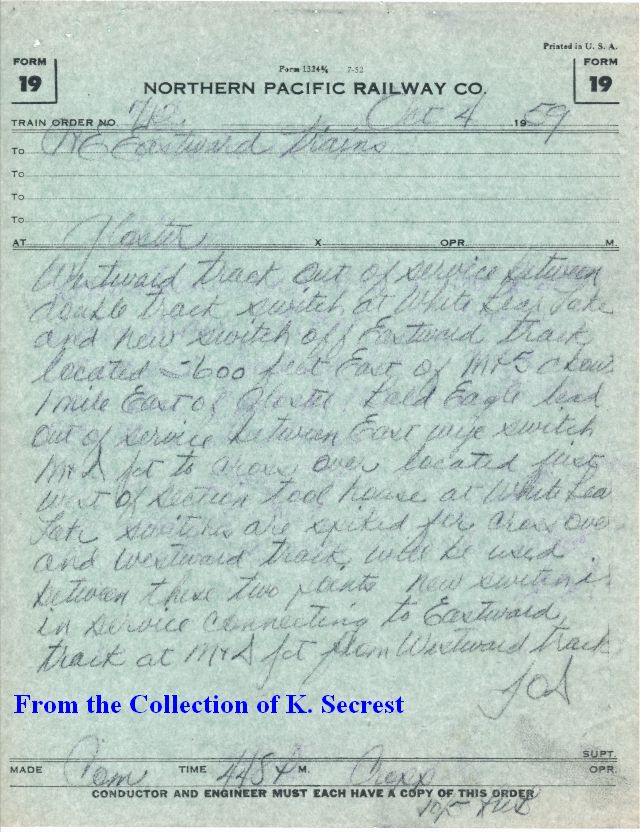 Printed in U. S. A.
FORM 19
Form 1324¾ 7-52
FORM 19
NORTHERN PACIFIC RAILWAY CO.
TRAIN ORDER NO. 712 Oct 4 1959
To C&E Eastward trains
To
To
To
AT Gloster X OPR. M.
Westward track out of service between
double track switch at White Bear Lake
and new switch off Eastward track
located 2600 feet East of MP 5 about
1 mile East of Gloster Bald Eagle lead
out of service between East wye switch
M&D Jct to cross over located just
west of section tool house at White Bear
Lake switches are spiked for cross over
and westward track will be used
between these two points new switch is
in service connecting to Eastward
track at M&D Jct from Westward track
From the Collection of K. Secrest
SUPT.
MADE Com TIME 448 P M. OPR.
CONDUCTOR AND ENGINEER MUST EACH HAVE A COPY OF THIS ORDER